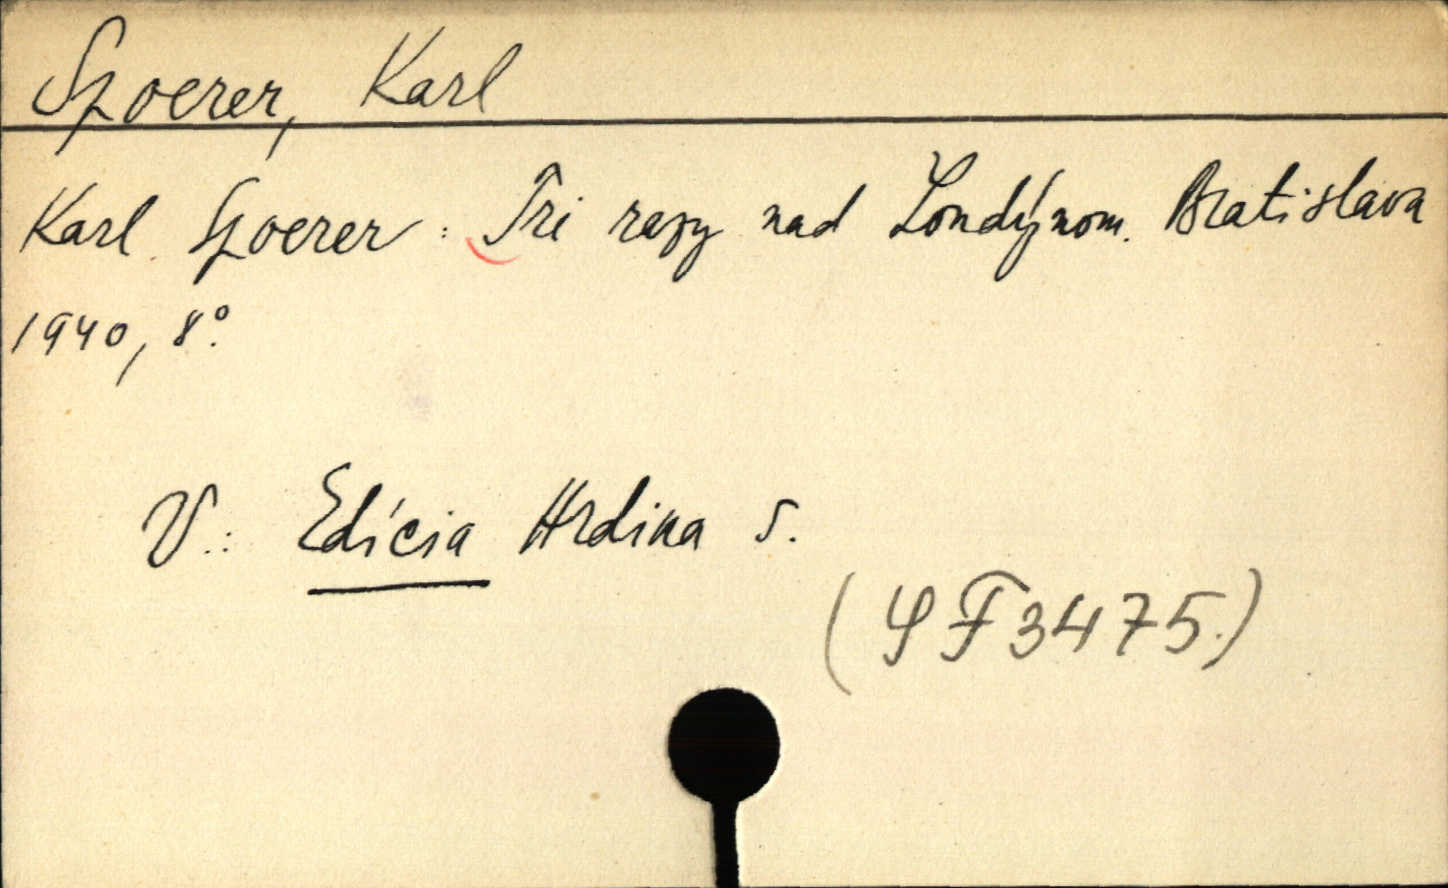 Spoerer, Karl
Karl Spoerer: Tri razy nad Londýnom. Bratislava
1940, 8°.
V.: Edícia Hrdina 5.
(SF3475.)